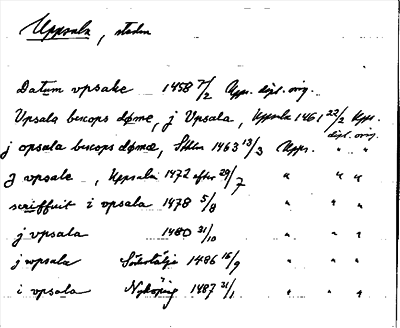 Uppsala, staden
Datum vpsake 1458 7/2 Upps. dipl. orig.
Vpsala bucops døme, j Vpsala, Uppsala 1461 22/2 Upps. dipl. orig.
j opsala bucops dømæ, Sthlm 1463 13/3 Upps. " "
J vpsale, Uppsala 1472 efter 29/7 " " "
scriffuit i vpsala 1478 5/8 " " "
j vpsala 1480 31/10 " " "
j wpsala Södertälje 1486 16/9 " " "
i vpsala Nyköping 1487 31/1 " " "